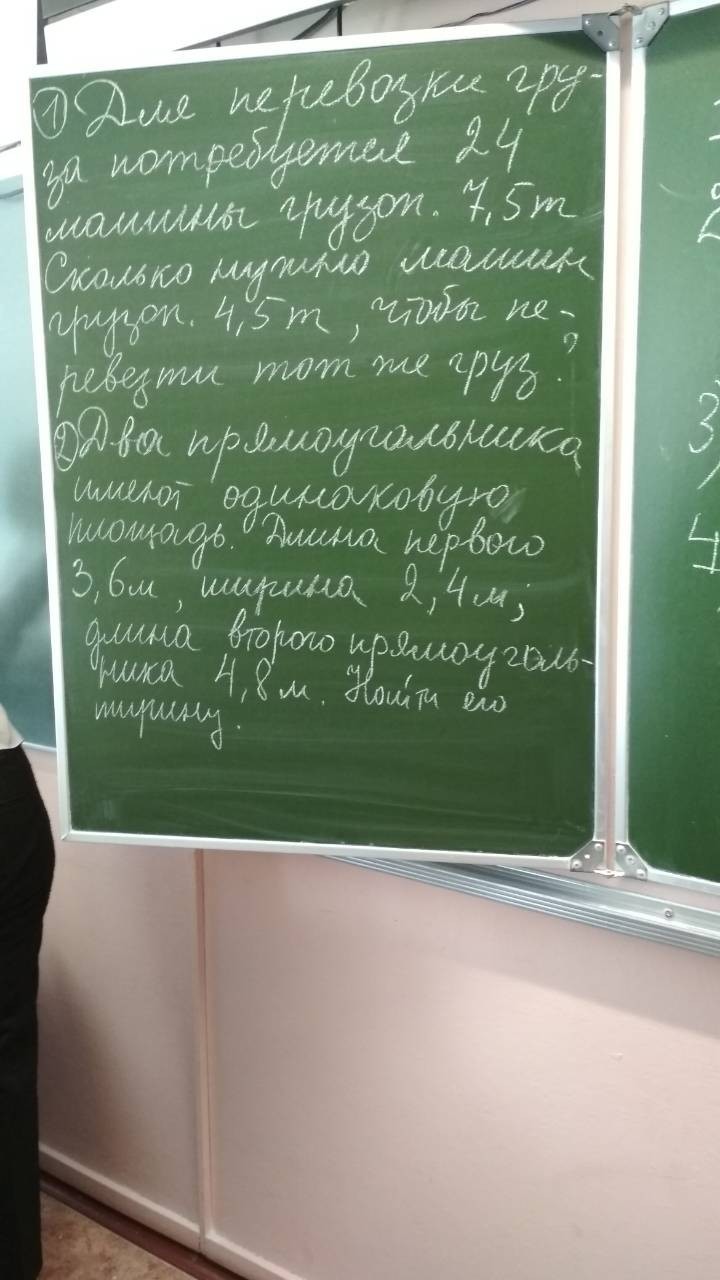 ① Для перевозки гру-
за потребуется 24
машины грузоп. 7,5т
Сколько нужно машин
грузоп. 4,5т, чтобы пе-
ревезти тот же груз?
② Два прямоугольника
имеют одинаковую
площадь. Длина первого
3,6м, ширина 2,4м;
длина второго прямоуголь-
ника 4,8м. Найти его
ширину.
3)
4